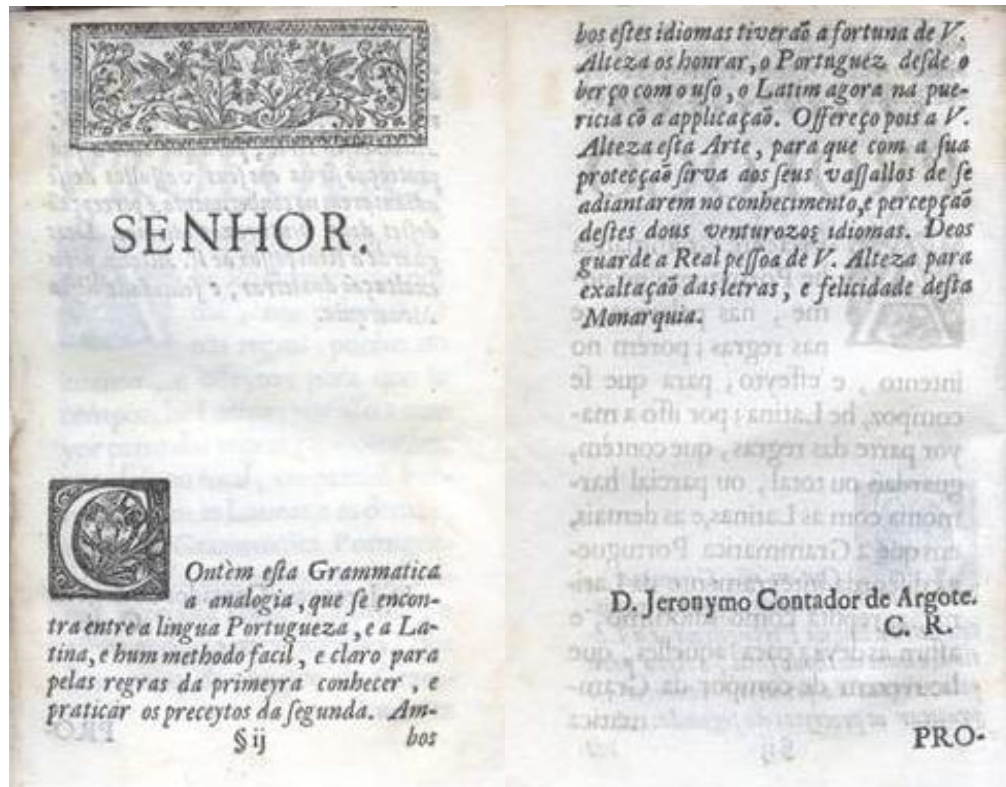 SENHOR.
COntèm eſta Grammatica
a analogia, que ſe encon-
tra entre a lingua Portugueza, e a La-
tina, e hum methodo facil, e claro para
pelas regras da primeyra conhecer, e
praticar os preceytos da ſegunda. Am-
§ ij bos
bos eſtes idiomas tiveraõ a fortuna de V.
Alteza os honrar, o Portuguez deſde o
berço com o uſo, o Latim agora na pue-
ricia cõ a applicaçaõ. Offereço pois a V.
Alteza eſta Arte, para que com a ſua
protecçaõ ſirva aos ſeus vaſſallos de ſe
adiantarem no conhecimento, e percepçaõ
deſtes dous venturozos idiomas. Deos
guarde a Real peſſoa de V. Alteza para
exaltaçaõ das letras, e felicidade deſta
Monarquia.
D. Jeronymo Contador de Argote.
C. R.
PRO-